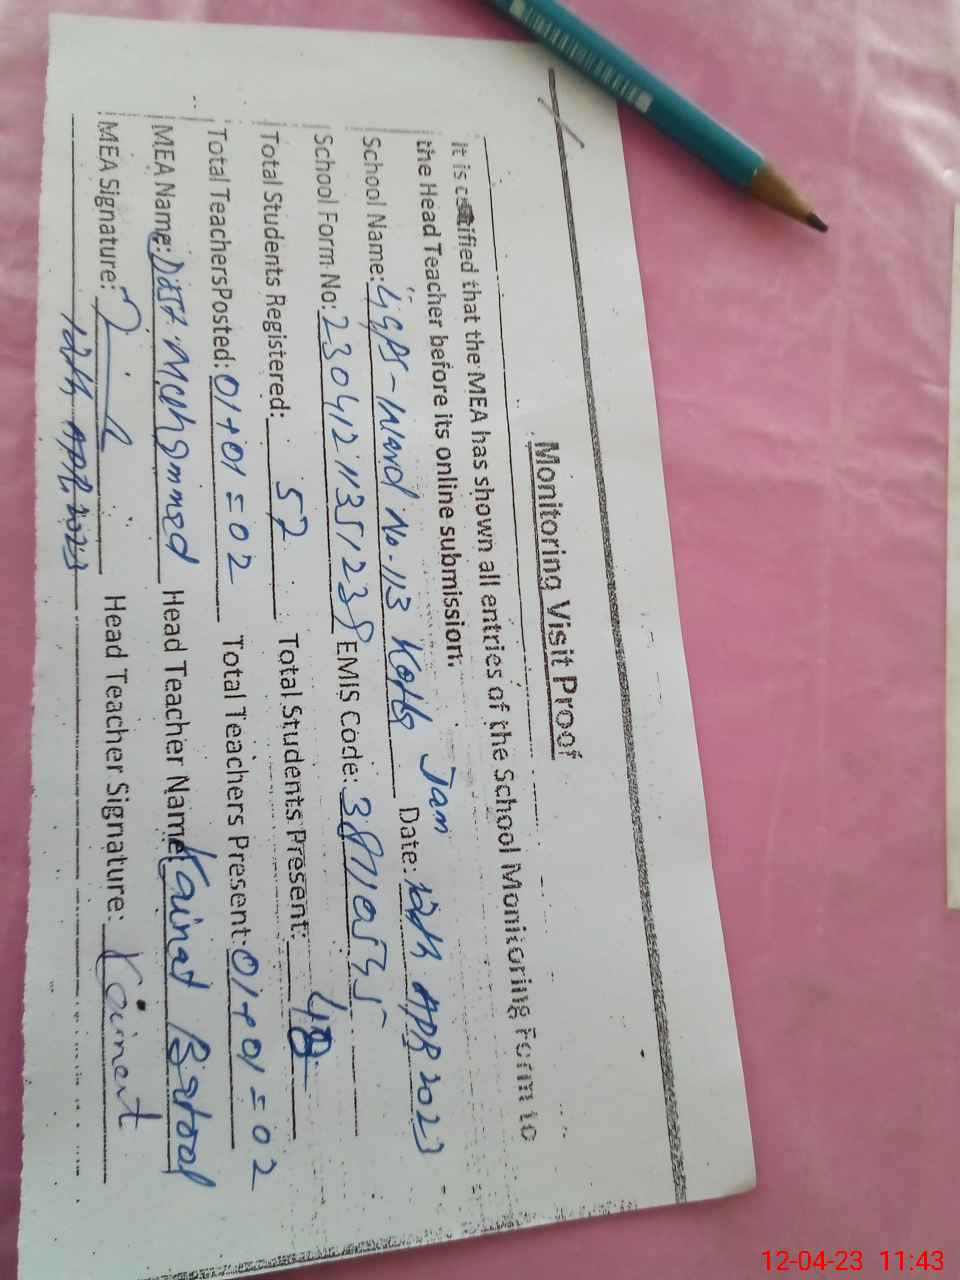 Monitoring Visit Proof
It is certified that the MEA has shown all entries of the School Monitoring Form to
the Head Teacher before its online submission.
School Name: GGPS - Ward No. 113 Kotla Jam Date: 12th APR 2023
School Form No: 23041211351238 EMIS Code:
Total Students Registered: 52 Total Students Present: 48
Total TeachersPosted: 01+01=02 Total Teachers Present: 01+01=02
MEA Name: Mohammed Head Teacher Name: Kainat Batool
MEA Signature: Head Teacher Signature: Kainat
12th APR. 2023
12-04-23 11:43